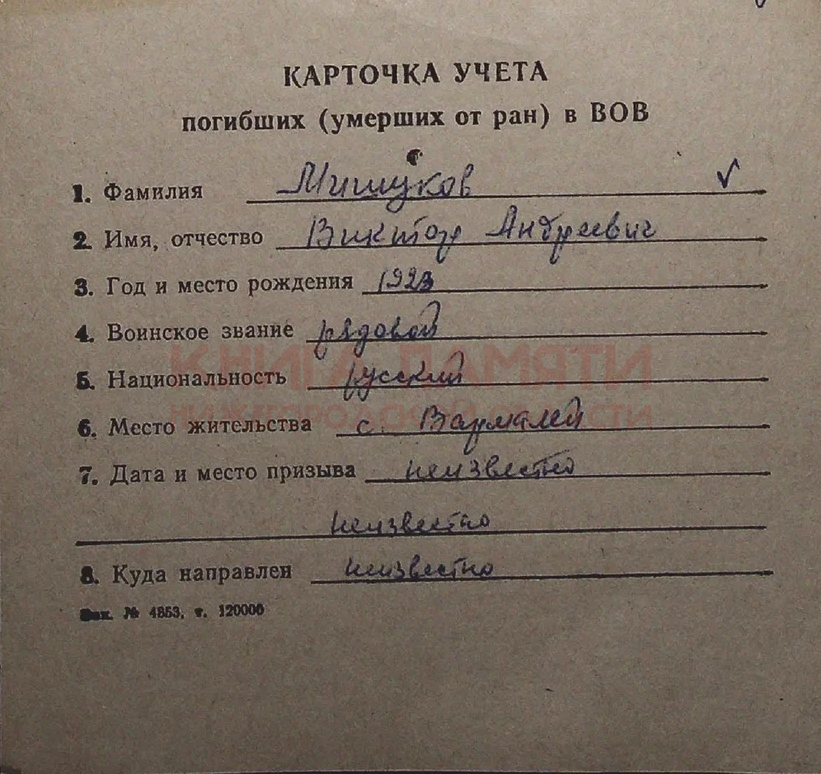 КАРТОЧКА УЧЕТА
погибших (умерших от ран) в ВОВ
1. Фамилия Мишуков ✓
2. Имя, отчество Виктор Андреевич
3. Год и место рождения 1923
4. Воинское звание рядовой
КНИГА ПАМЯТИ
5. Национальность русский
НИЖЕГОРОДСКОЙ ОБЛАСТИ
6. Место жительства с. Вармалей
7. Дата и место призыва неизвестно
неизвестно
8. Куда направлен неизвестно
Зак. № 4853, т. 120000